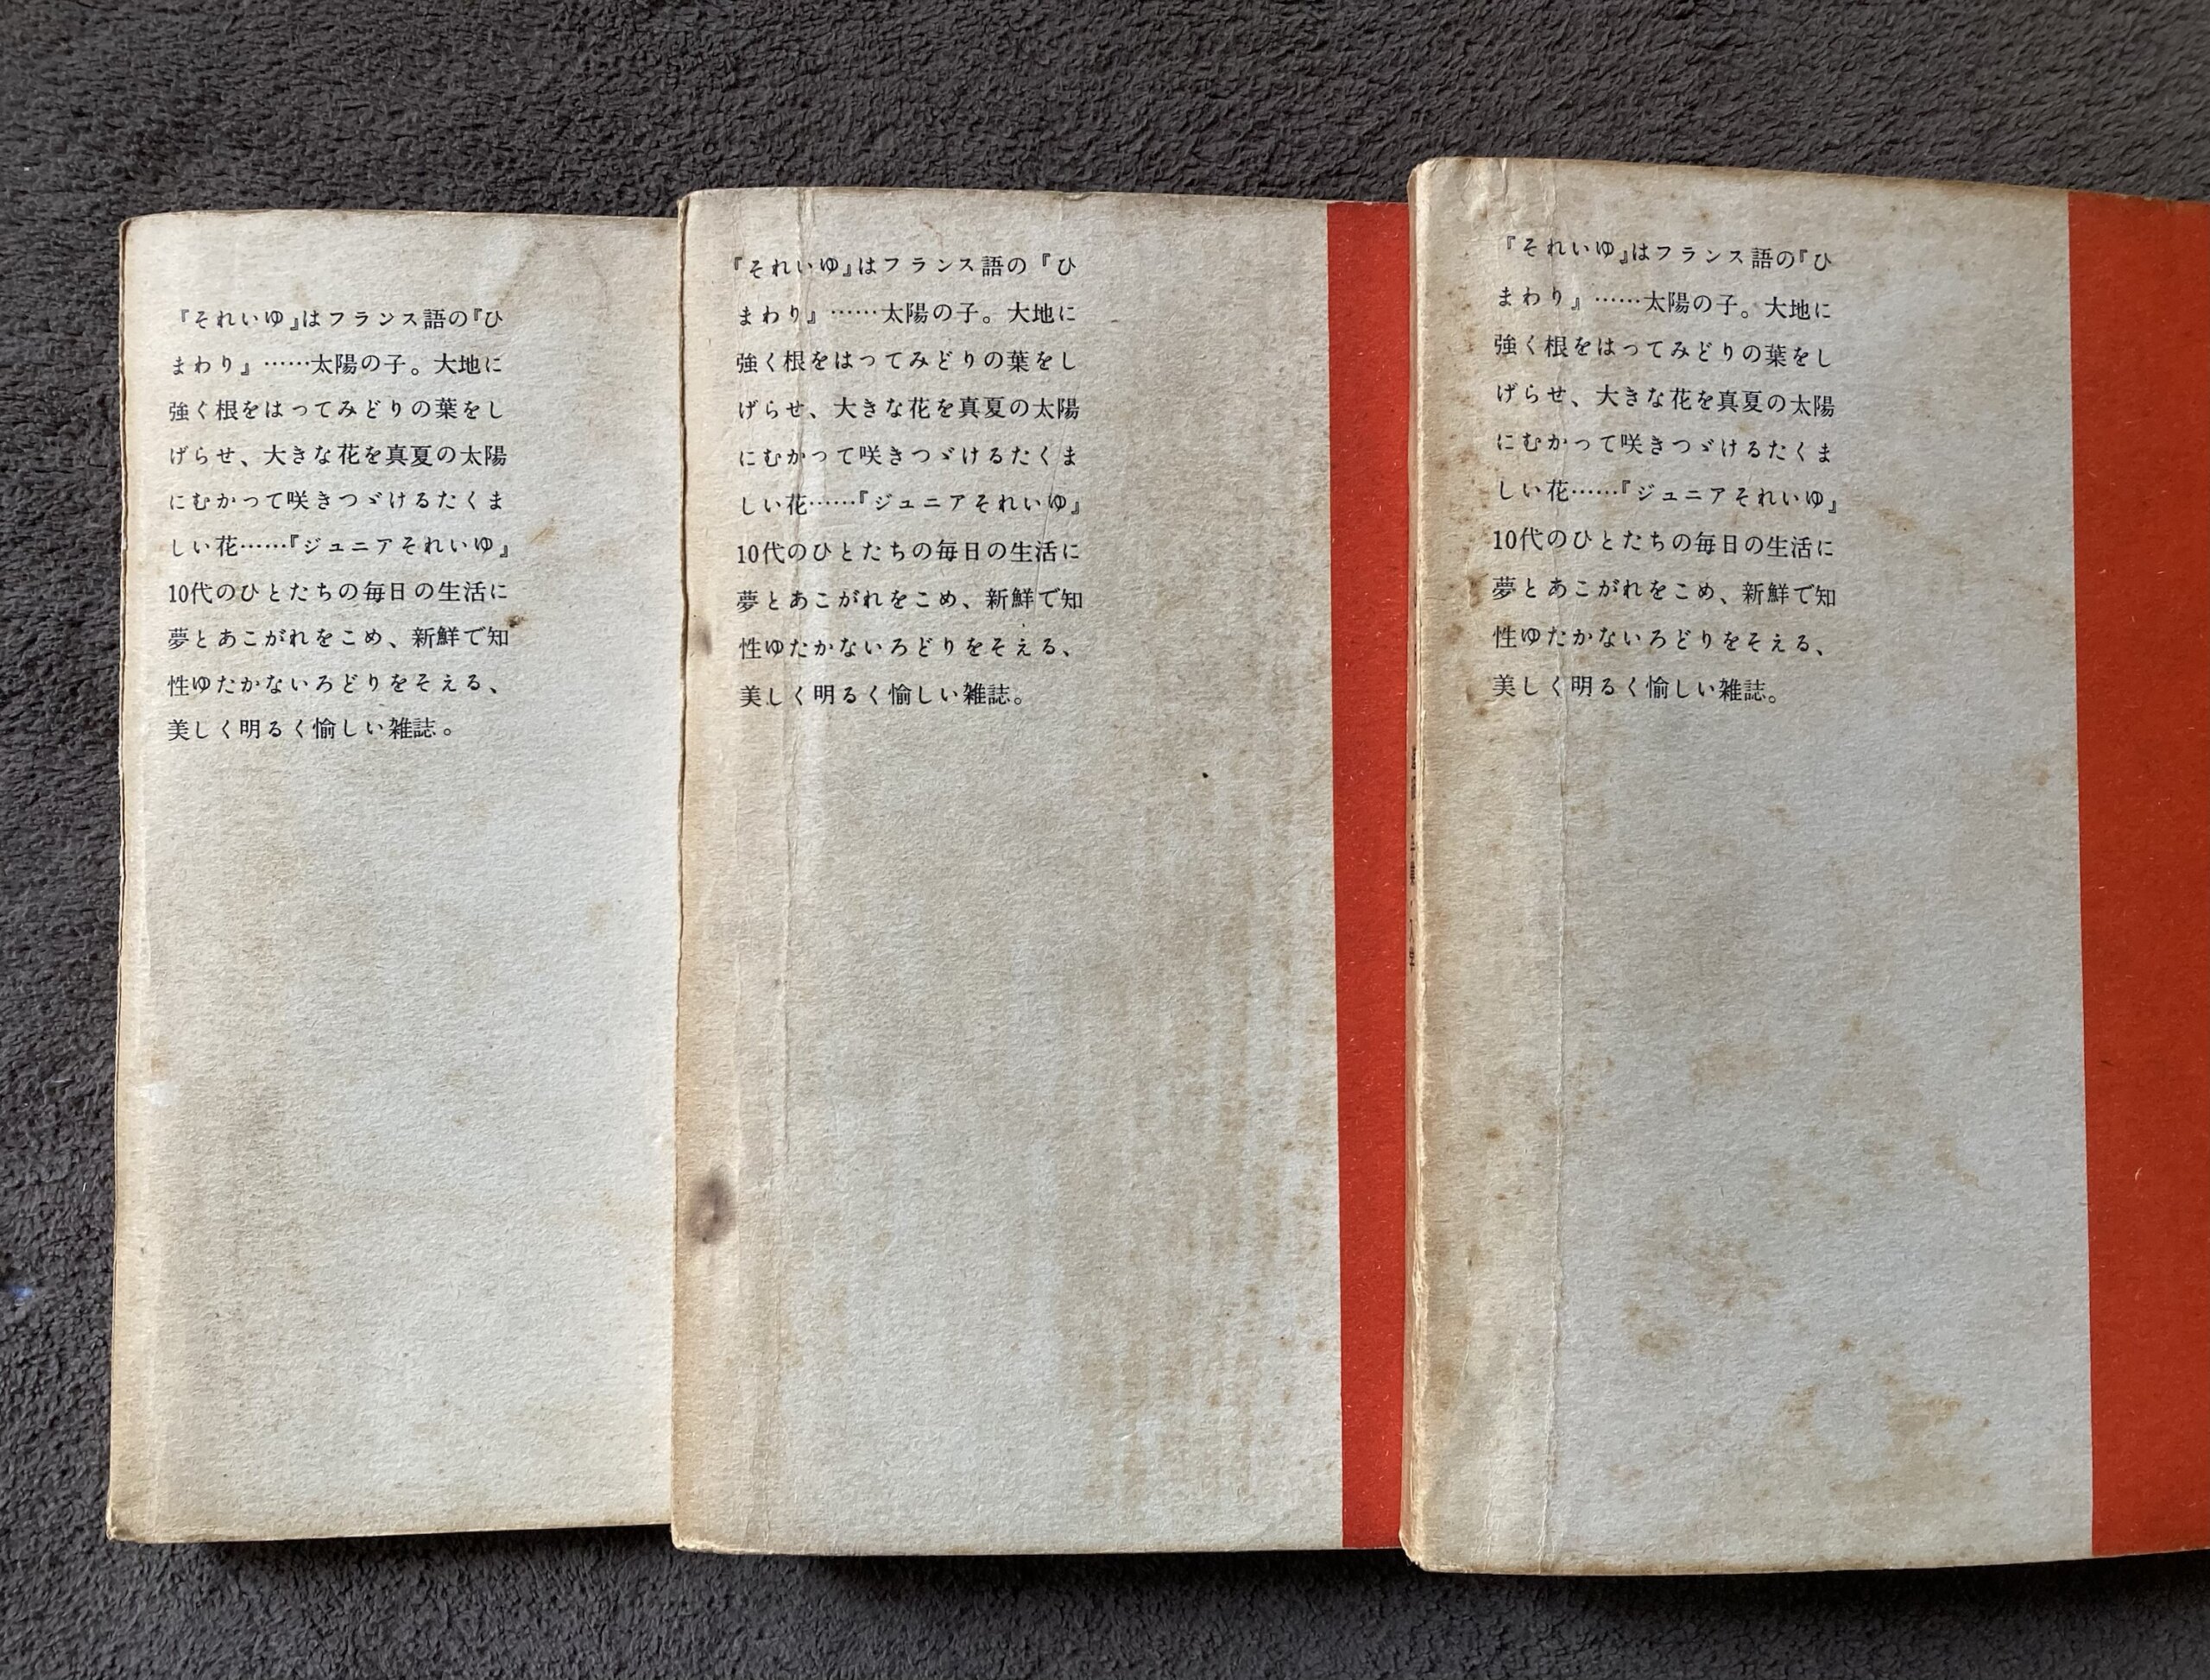 『それいゆ』はフランス語の『ひ
まわり』……太陽の子。大地に
強く根をはってみどりの葉をし
げらせ、大きな花を真夏の太陽
にむかって咲きつゞけるたくま
しい花……『ジュニアそれいゆ』
10代のひとたちの毎日の生活に
夢とあこがれをこめ、新鮮で知
性ゆたかないろどりをそえる、
美しく明るく愉しい雑誌。
『それいゆ』はフランス語の『ひ
まわり』……太陽の子。大地に
強く根をはってみどりの葉をし
げらせ、大きな花を真夏の太陽
にむかって咲きつゞけるたくま
しい花……『ジュニアそれいゆ』
10代のひとたちの毎日の生活に
夢とあこがれをこめ、新鮮で知
性ゆたかないろどりをそえる、
美しく明るく愉しい雑誌。
『それいゆ』はフランス語の『ひ
まわり』……太陽の子。大地に
強く根をはってみどりの葉をし
げらせ、大きな花を真夏の太陽
にむかって咲きつゞけるたくま
しい花……『ジュニアそれいゆ』
10代のひとたちの毎日の生活に
夢とあこがれをこめ、新鮮で知
性ゆたかないろどりをそえる、
美しく明るく愉しい雑誌。